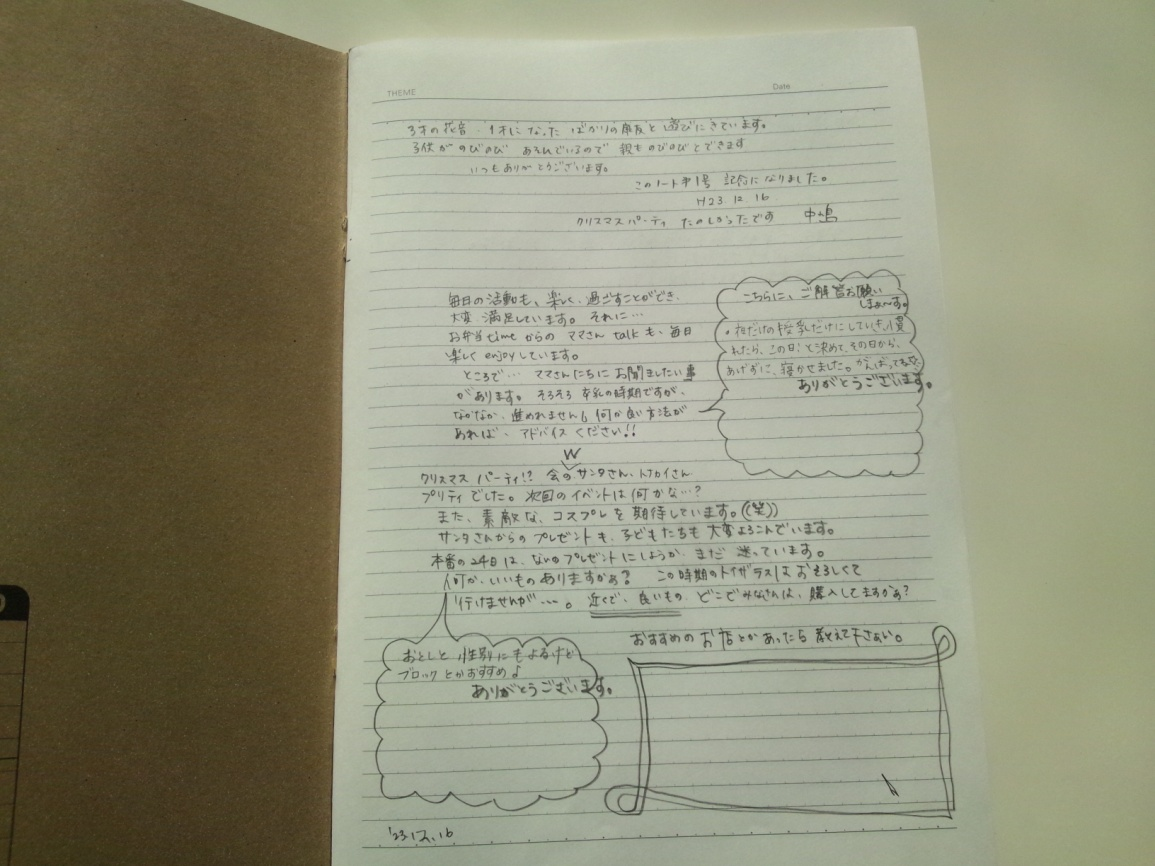 THEME
Date
3才の花音 1才になった ばかりの 友と 遊びにきています。
子供が のびのび あそんでいるので 親ものびのびとできます
いつもありがとうございます。
このノート第1号 記念になりました。
H23 12 16
クリスマスパーティ たのしかったです 中嶋
毎日の活動も、楽しく、過ごすことができ、
大変 満足しています。それに…
お弁当timeからの ママさん talkも、毎日
楽しく enjoyしています。
ところで… ママさんたちに お聞きしたい事
があります。そろそろ 卒乳の時期ですが、
なかなか、進めれません。何か良い方法が
あれば、アドバイスください!!
こちらに、ご解答お願い
しまぁ〜す。
・夜だけの授乳だけにしていき、慣
れたら、この日!と決めて、その日から、
あげずに、寝かせました。がんばってね
ありがとうございます。
W
クリスマス パーティ!? 会のサンタさん、トナカイさん
プリティでした。次回のイベントは何かな…?
また、素敵な、コスプレを期待しています。((笑))
サンタさんからのプレゼントも、子どもたちも大変よろこんでいます。
本番の24日は、なんのプレゼントにしようか、まだ 迷っています。
何か、いいものありますかぁ? この時期のトイザラスはおそろしくて
行けませんが…。近くで、良いもの、どこでみなさんは、購入してますかぁ?
おすすめの お店とかあったら 教えて下さぁい。
おとしと 性別にもよるけど
ブロックとかおすすめ♪
ありがとうございます。
'23.12.16